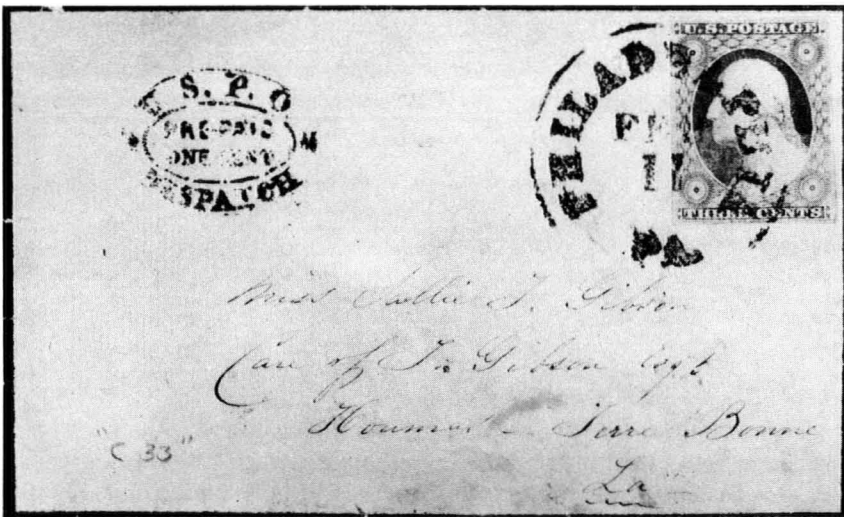 U. S. P. O.
PRE-PAID
ONE CENT
DESPATCH
M
PHILADE
FE
PA
U.S. POSTAGE
THREE CENTS
Miss Sallie J. Gibson
Care of Gibson Esqr
Terre Bonne
La
"C 33"